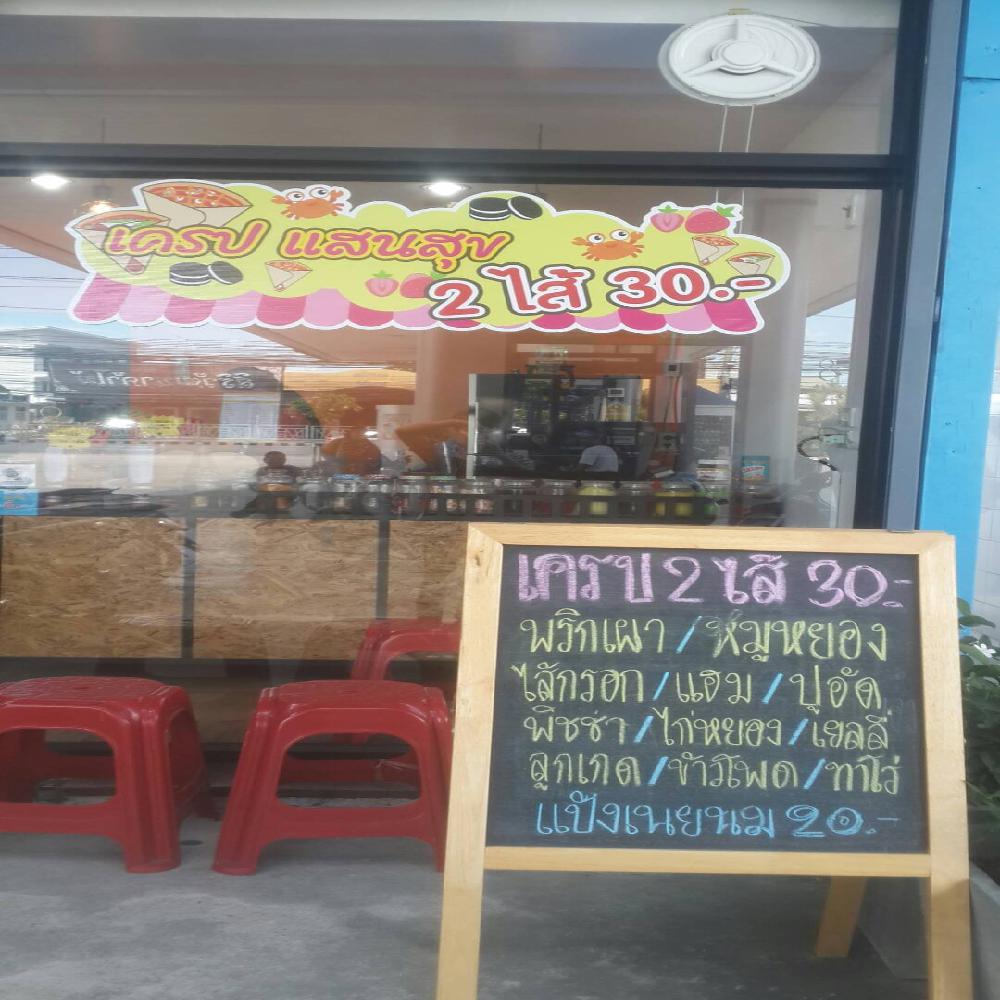 เครป แสนสุข
2 ไส้ 30.-
เครป 2 ไส้ 30.-
พริกเผา / หมูหยอง
ไส้กรอก / แฮม / ปูอัด
พิซซ่า / ไก่หยอง / เยลลี่
ลูกเกด / ข้าวโพด / ทาโร่
แป้งเนยนม 20.-